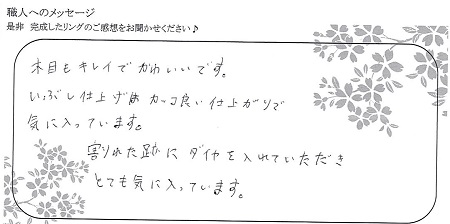 職人へのメッセージ
是非 完成したリングのご感想をお聞かせください♪
木目もキレイでかわいいです。
いぶし仕上げもカッコ良い仕上がりで
気に入っています。
割れた跡にダイヤを入れていただき
とても気に入っています。